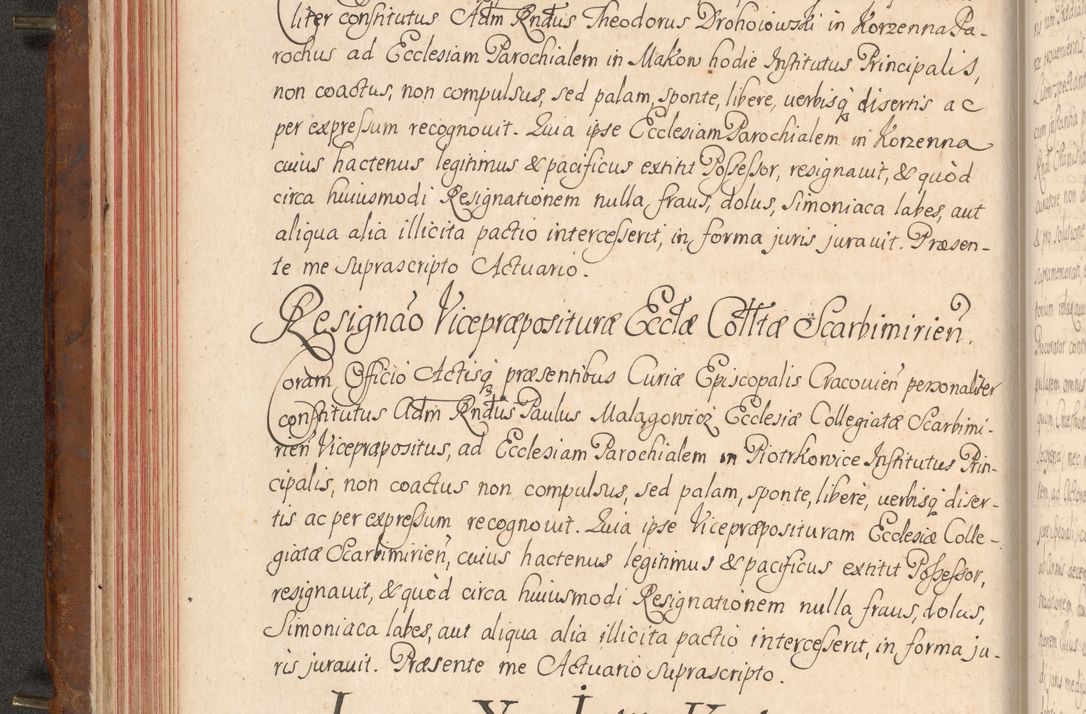 liter constitutus Adm Rndus Theodorus Drohoiowski in Korzenna Pa-
rochus ad Ecclesiam Parochialem in Makow hodie Institutus Principalis,
non coactus, non compulsus, sed palam, sponte, libere, verbisq disertis ac
per expressum recognouit. Quia ipse Ecclesiam Parochialem in Korzenna
cuius hactenus legitimus & pacificus extitit Possessor, resignauit, & quòd
circa huiusmodi Resignationem nulla fraus, dolus, simoniaca labes, aut
aliqua alia illicita pactio intercesserit, in forma juris jurauit. Præsen-
te me suprascripto Actuario.
Resignão Vicepræposituræ Ecclæ Colltæ Scarbimirien.
Coram Officio Actisq præsentibus Curiæ Episcopalis Cracouien personaliter
constitutus Adm Rndus Paulus Malagowicz Ecclesiæ Collegiatæ Scarbimi-
rien Vicepræpositus, ad Ecclesiam Parochialem in Piotrkowice Institutus Prin-
cipalis, non coactus non compulsus, sed palam, sponte, liberè, uerbisq diser-
tis ac per expressum recognouit. Quia ipse Vicepræposituram Ecclesiæ Colle-
giatæ Scarbimirien, cuius hactenus legitimus & pacificus extitit Possessor,
resignauit, & quòd circa huiusmodi Resignationem nulla fraus, dolus,
Simoniaca labes, aut aliqua alia illicita pactio intercesserit, in forma ju-
ris jurauit. Præsente me Actuario suprascripto.